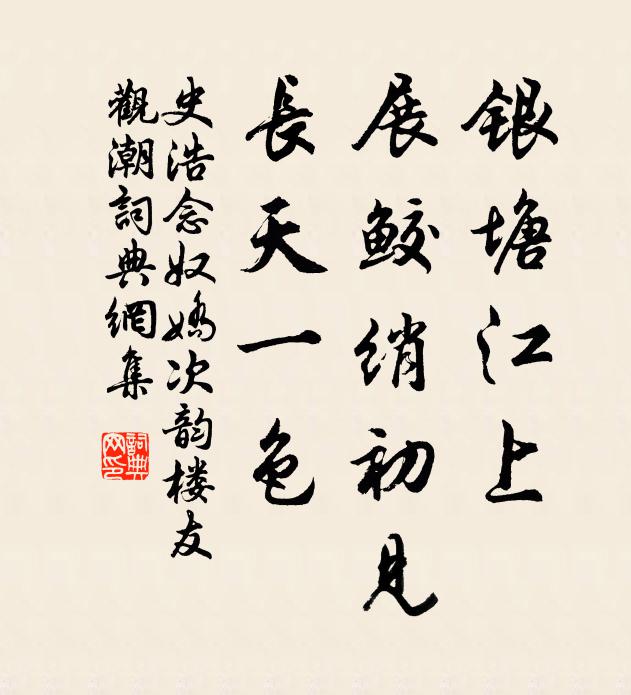 銀塘江上
展鮫綃初見
長天一色
史浩念奴嬌次韵楼友
觀潮詞典網集
詞典網印